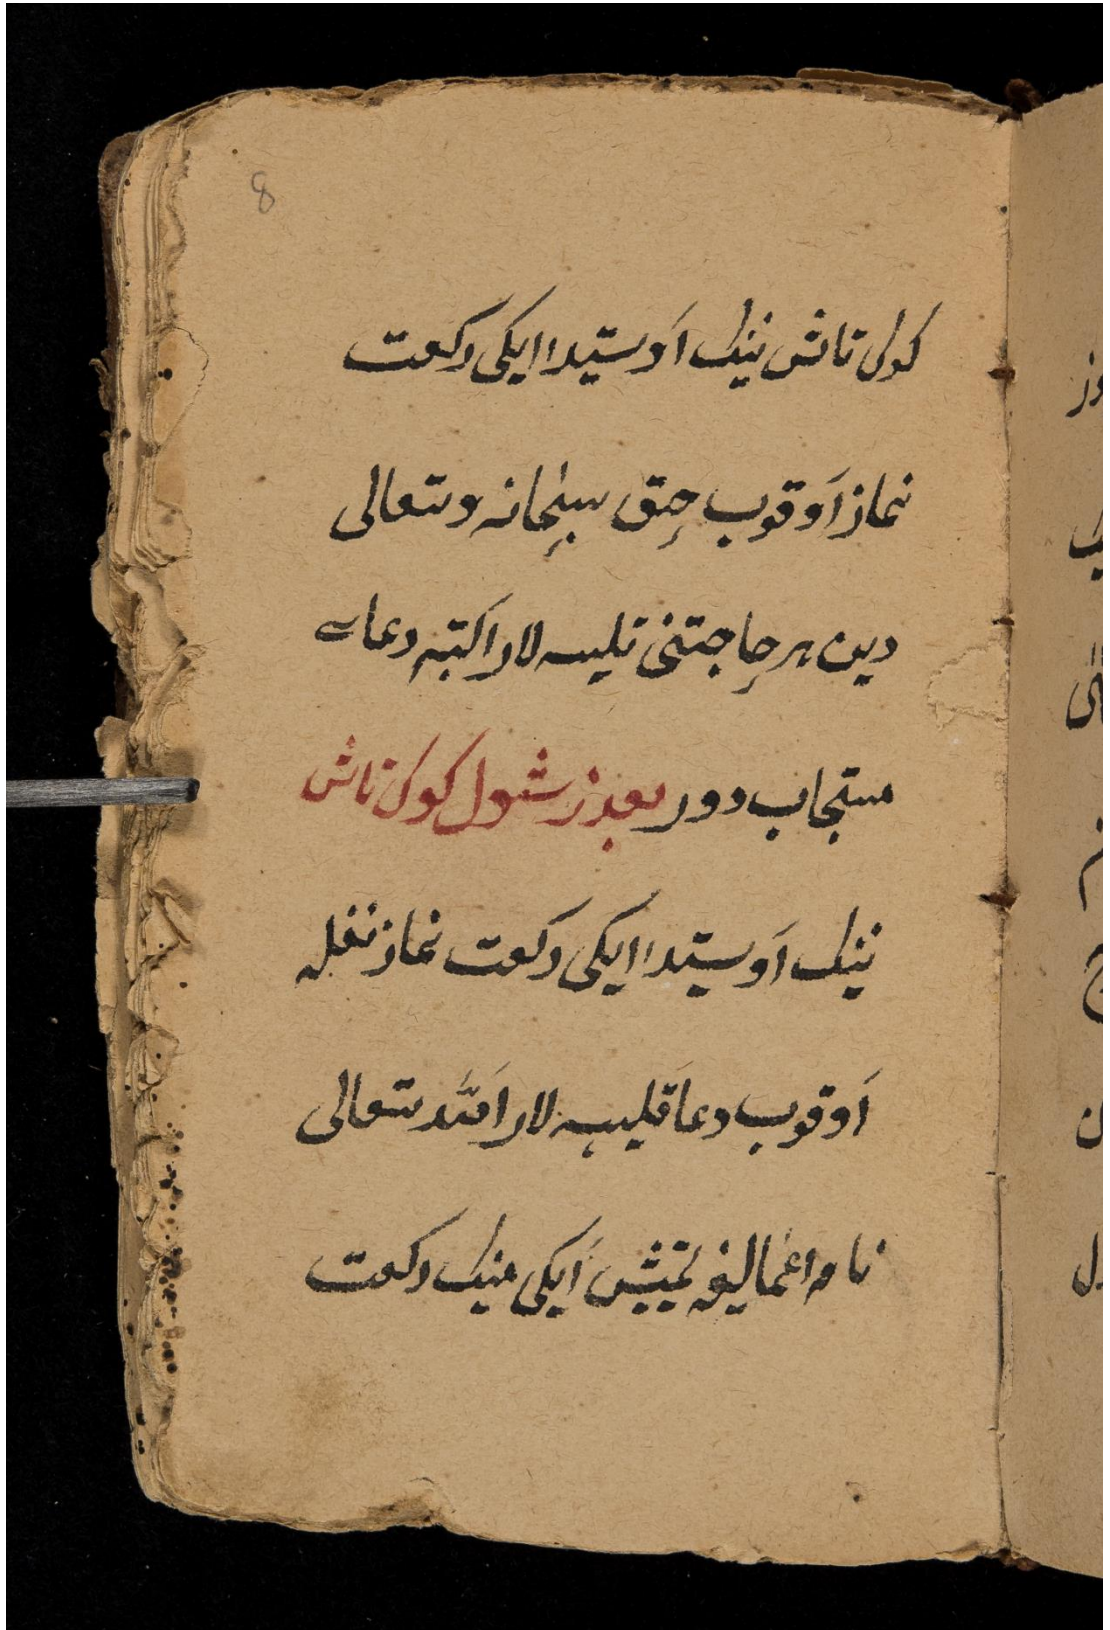 8
کول تاش نینک اَوستیدا ایکی رکعت
نماز اَوقوب حق سبحانه وتعالی
دین هر حاجتنی تلیسه لار اکتبه دعاسی
مستجاب دور بعدز شول کوک تاش
نینک اَوستیدا ایکی رکعت نماز نفله
اَوقوب دعا قلیسه لار اَللّه تعالی
نامه اعمالیغه یتمیش اَیکی مینک رکعت